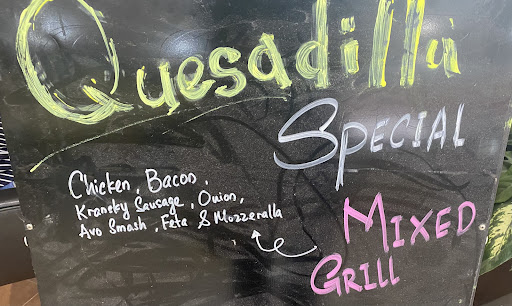 Quesadilla
Special
Chicken, Bacon,
Kransky Sausage, Onion,
Avo Smash, Feta & Mozzeralla
Mixed
Grill